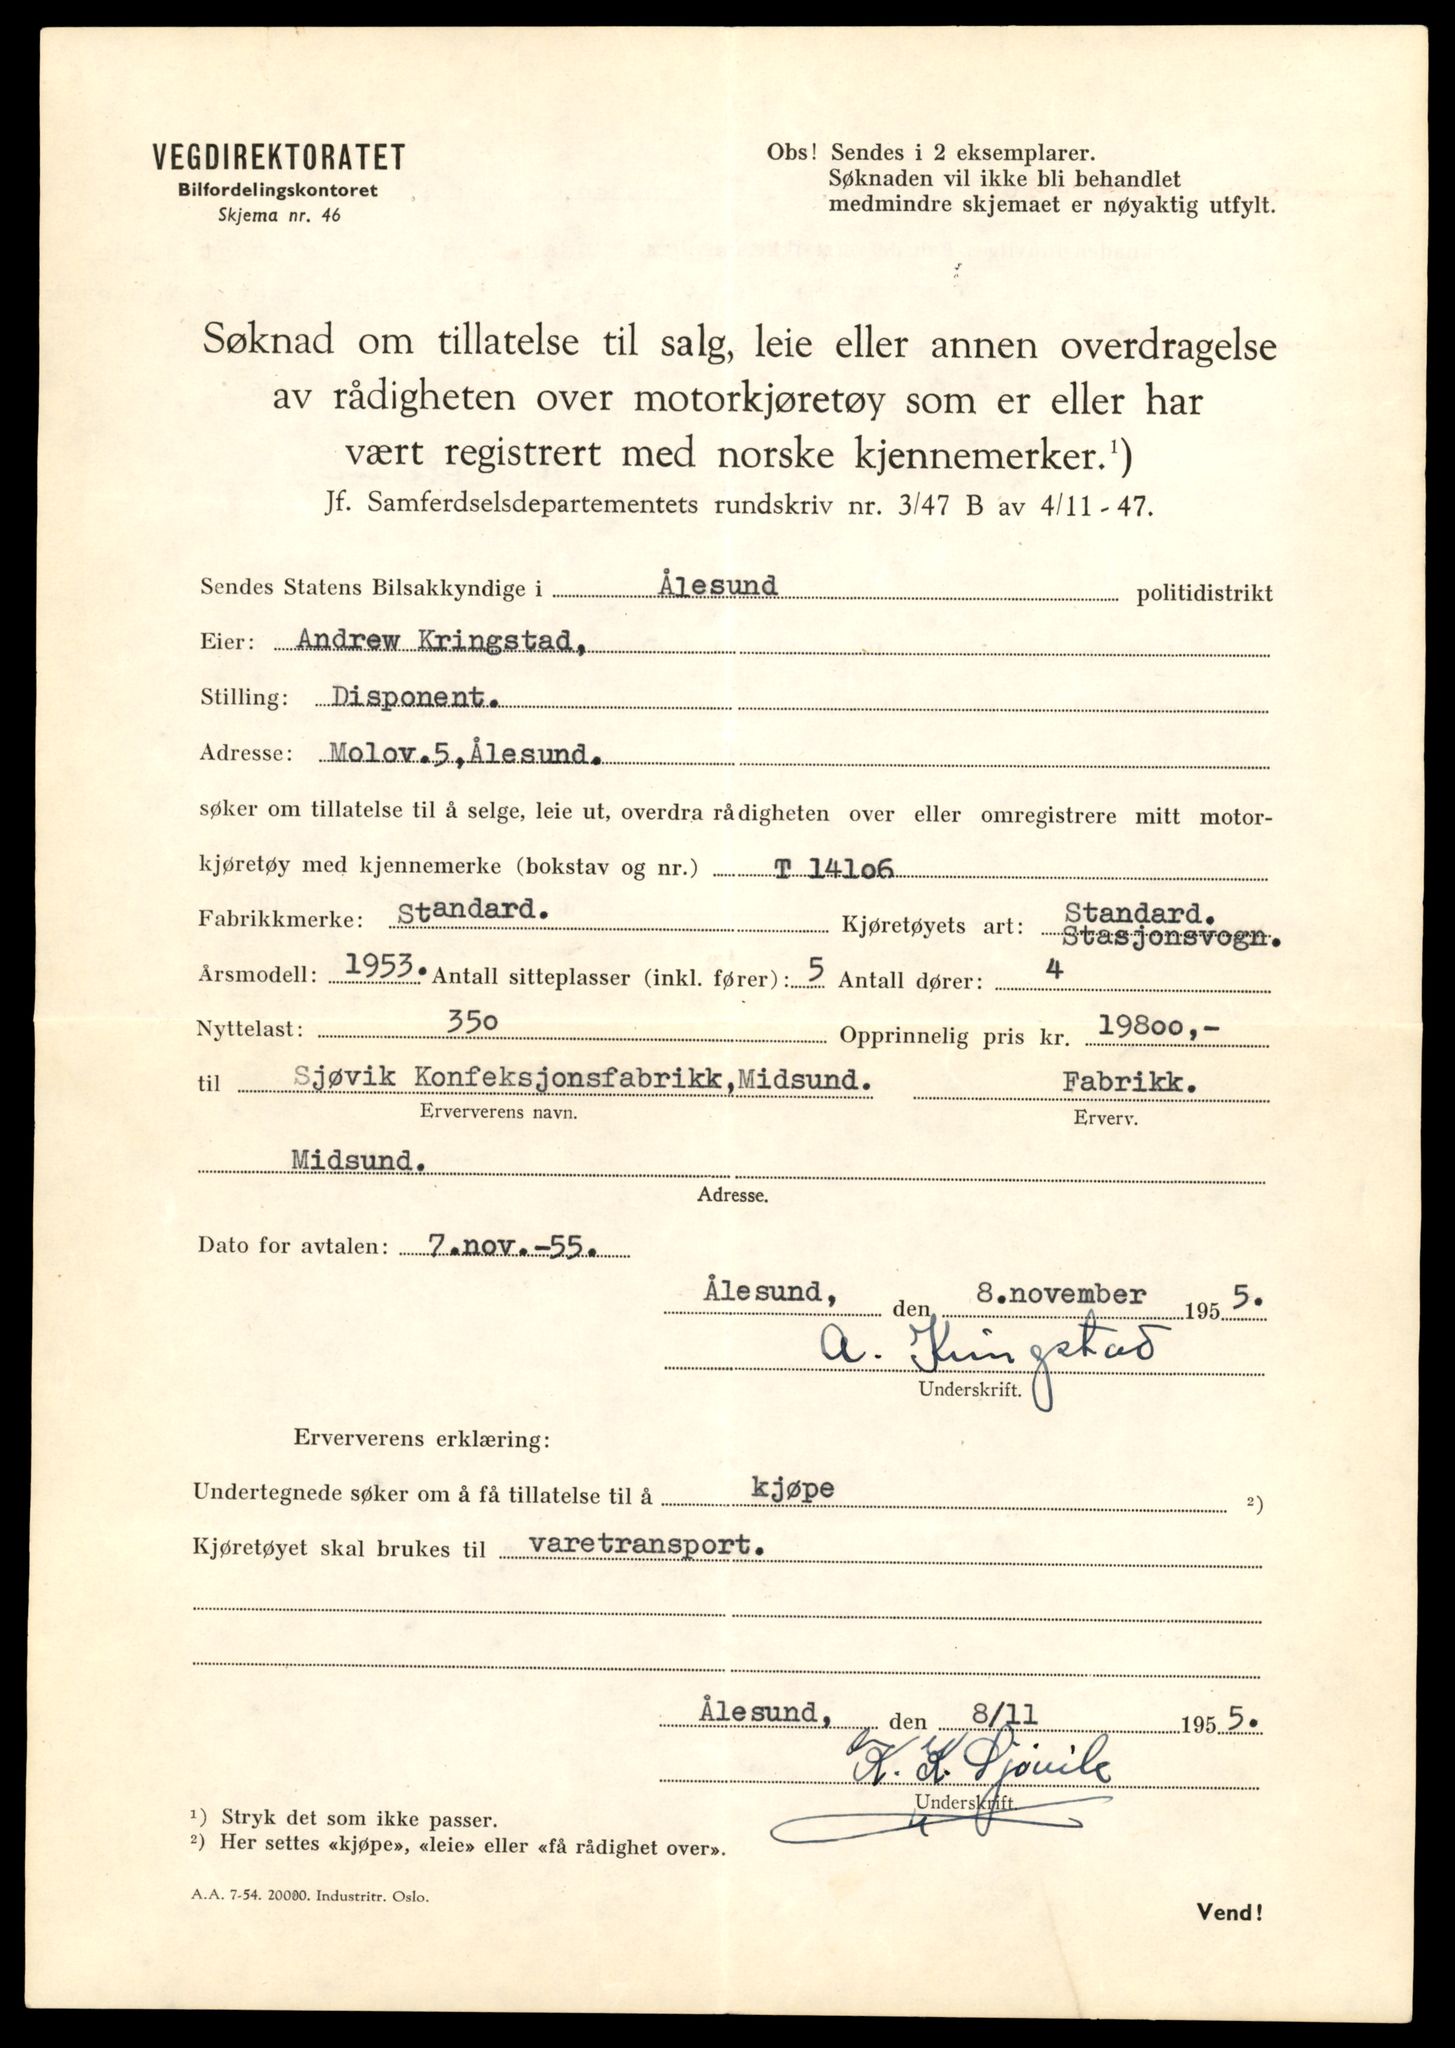 VEGDIREKTORATET
Bilfordelingskontoret
Skjema nr. 46
Obs! Sendes i 2 eksemplarer.
Søknaden vil ikke bli behandlet
medmindre skjemaet er nøyaktig utfylt.
Søknad om tillatelse til salg, leie eller annen overdragelse
av rådigheten over motorkjøretøy som er eller har
vært registrert med norske kjennemerker.¹)
Jf. Samferdselsdepartementets rundskriv nr. 3/47 B av 4/11 - 47.
Sendes Statens Bilsakkyndige i Ålesund politidistrikt
Eier: Andrew Kringstad,
Stilling: Disponent.
Adresse: Molov.5,Ålesund.
søker om tillatelse til å selge, leie ut, overdra rådigheten over eller omregistrere mitt motor-
kjøretøy med kjennemerke (bokstav og nr.) T 141o6
Fabrikkmerke: Standard. Kjøretøyets art: Standard.
Stasjonsvogn.
Årsmodell: 1953. Antall sitteplasser (inkl. fører): 5 Antall dører: 4
Nyttelast: 35o Opprinnelig pris kr. 198oo,-
til Sjøvik Konfeksjonsfabrikk,Midsund. Fabrikk.
Erververens navn. Erverv.
Midsund.
Adresse.
Dato for avtalen: 7.nov.-55.
Ålesund, den 8.november 1955.
A. Kringstad
Underskrift.
Erververens erklæring:
Undertegnede søker om å få tillatelse til å kjøpe ²)
Kjøretøyet skal brukes til varetransport.
Ålesund, den 8/11 1955.
K. K. Sjøvik
Underskrift.
¹) Stryk det som ikke passer.
²) Her settes «kjøpe», «leie» eller «få rådighet over».
A.A. 7-54. 20000. Industritr. Oslo.
Vend!